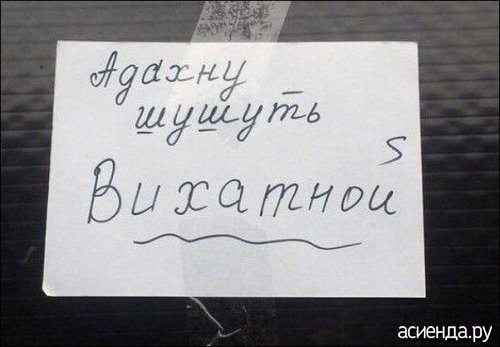 Адахну
шушуть
Вихатной
асиенда.ру